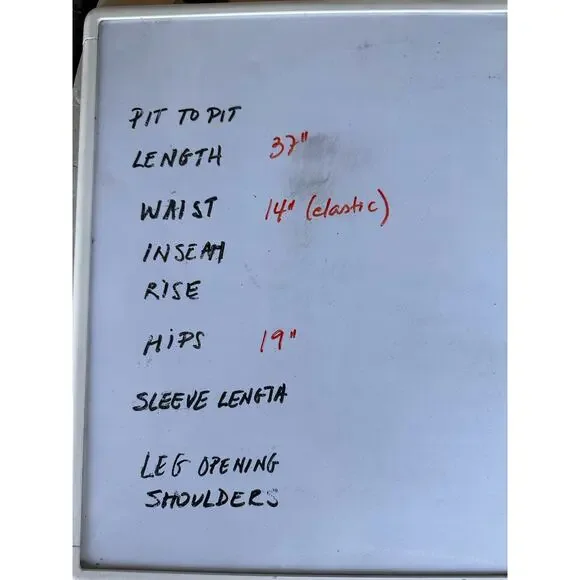 PIT TO PIT
LENGTH 37"
WAIST 14" (elastic)
INSEAM
RISE
HIPS 19"
SLEEVE LENGTH
LEG OPENING
SHOULDERS